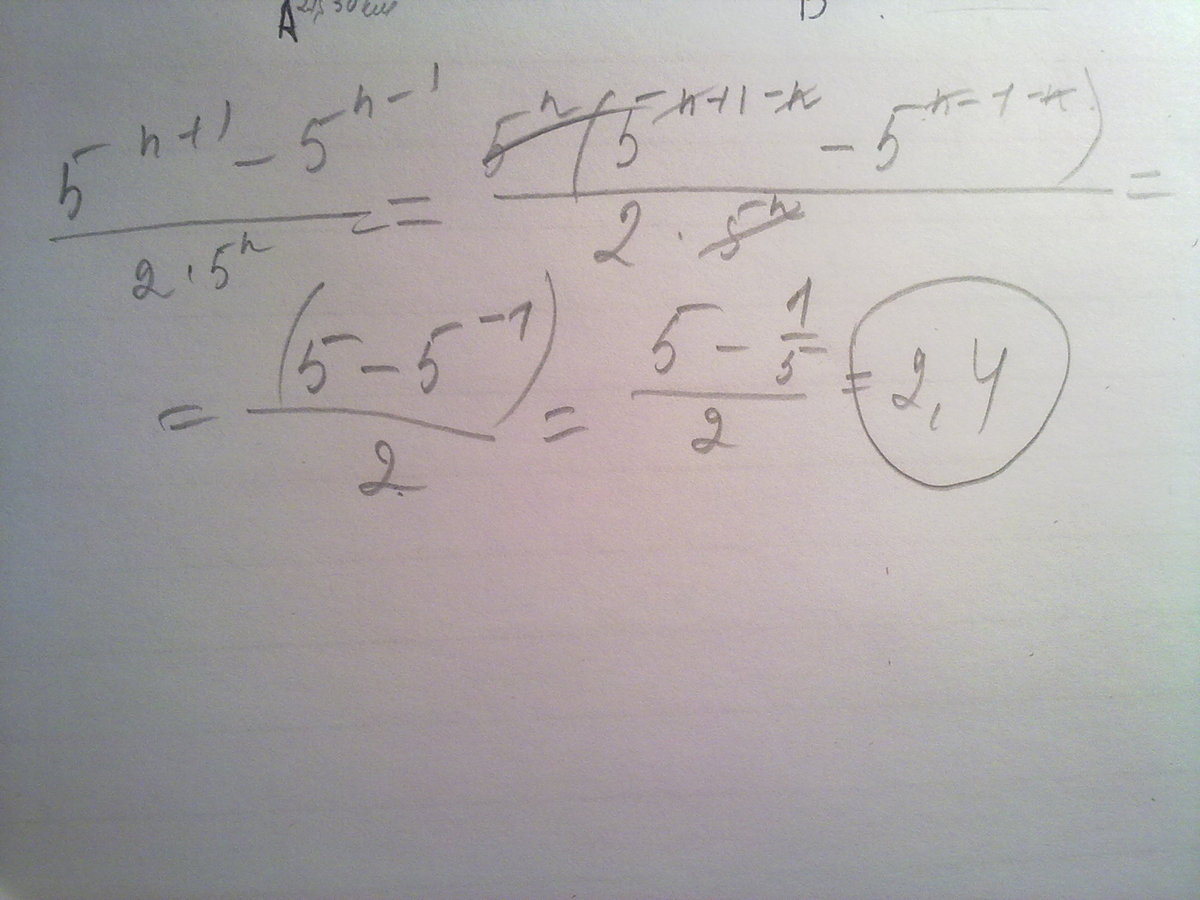 A B
(5^(n+1) - 5^(n-1)) / (2 · 5^n) = 5^n (5^(n+1-n) - 5^(n-1-n)) / (2 · 5^n) =
= (5 - 5^(-1)) / 2 = (5 - 1/5) / 2 = 2,4